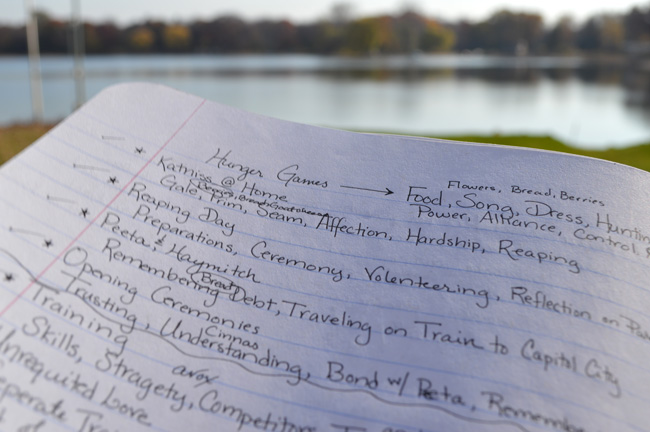 Flowers, Bread, Berries
Hunger Games → Food, Song, Dress,
Power, Alliance, Control
* Katniss @ Home
Gale, Prim, Seam, Affection, Hardship, Reaping
* Reaping Day
Preparations, Ceremony, Volunteering, Reflection on
* Peeta & Haymitch
(Bread)
Remembering Debt, Traveling on Train to Capitol City
* Opening Ceremonies
Cinnas
Trusting, Understanding, Bond w/ Peeta,
* Training
avox
Skills, Stragety,
Unrequited Love